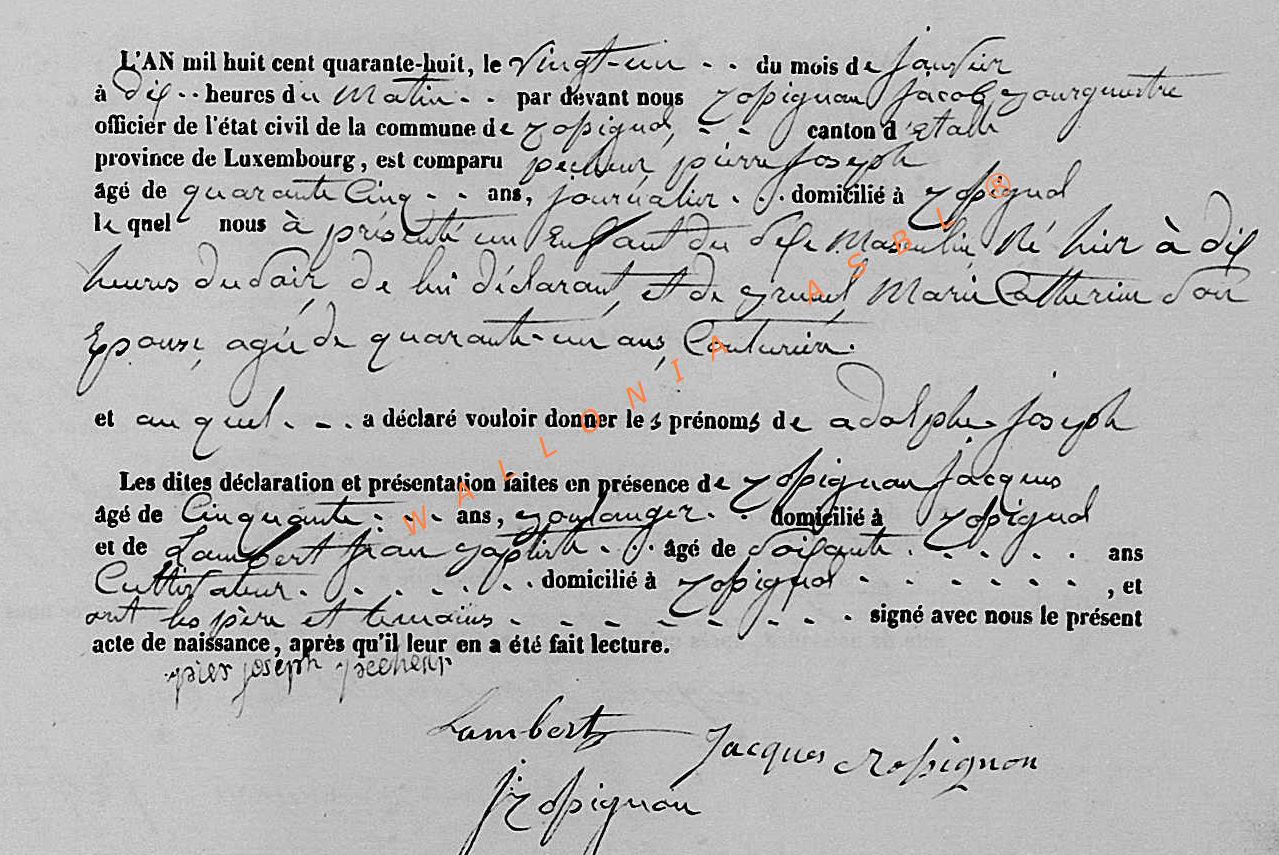 L'AN mil huit cent quarante-huit, le vingt-un - - du mois de janvier
à dix - - heures du matin - - par devant nous Rossignon Jacob Bourguestre
officier de l'état civil de la commune de Rossignol, - - canton d'Etalle
province de Luxembourg, est comparu pécheur pierre Joseph
âgé de quarante Cinq - - ans, journalier - - domicilié à Rossignol
le quel nous à présenté un Enfant du Sexe Masculin Né hier à dix
heures du soir, de lui déclarant, et de Marie Catherine son
Epouse, agée de quarante-un ans, Couturière.
et au quel - - - a déclaré vouloir donner les prénoms de adolphe Joseph
Les dites déclaration et présentation faites en présence de Rossignon Jacques
âgé de Cinquante - - - ans, Boulanger - - domicilié à Rossignol
et de Lambert jean Baptiste - - - âgé de Soixante - - - - - ans
Cultivateur - - - - - - domicilié à Rossignol - - - - - - - , et
ont les père et temoins - - - - - - - - signé avec nous le présent
acte de naissance, après qu'il leur en a été fait lecture.
pier joseph pecheur
Lambert
Jacques Rossignon
J Rossignon
WALLONIA ASBL ®